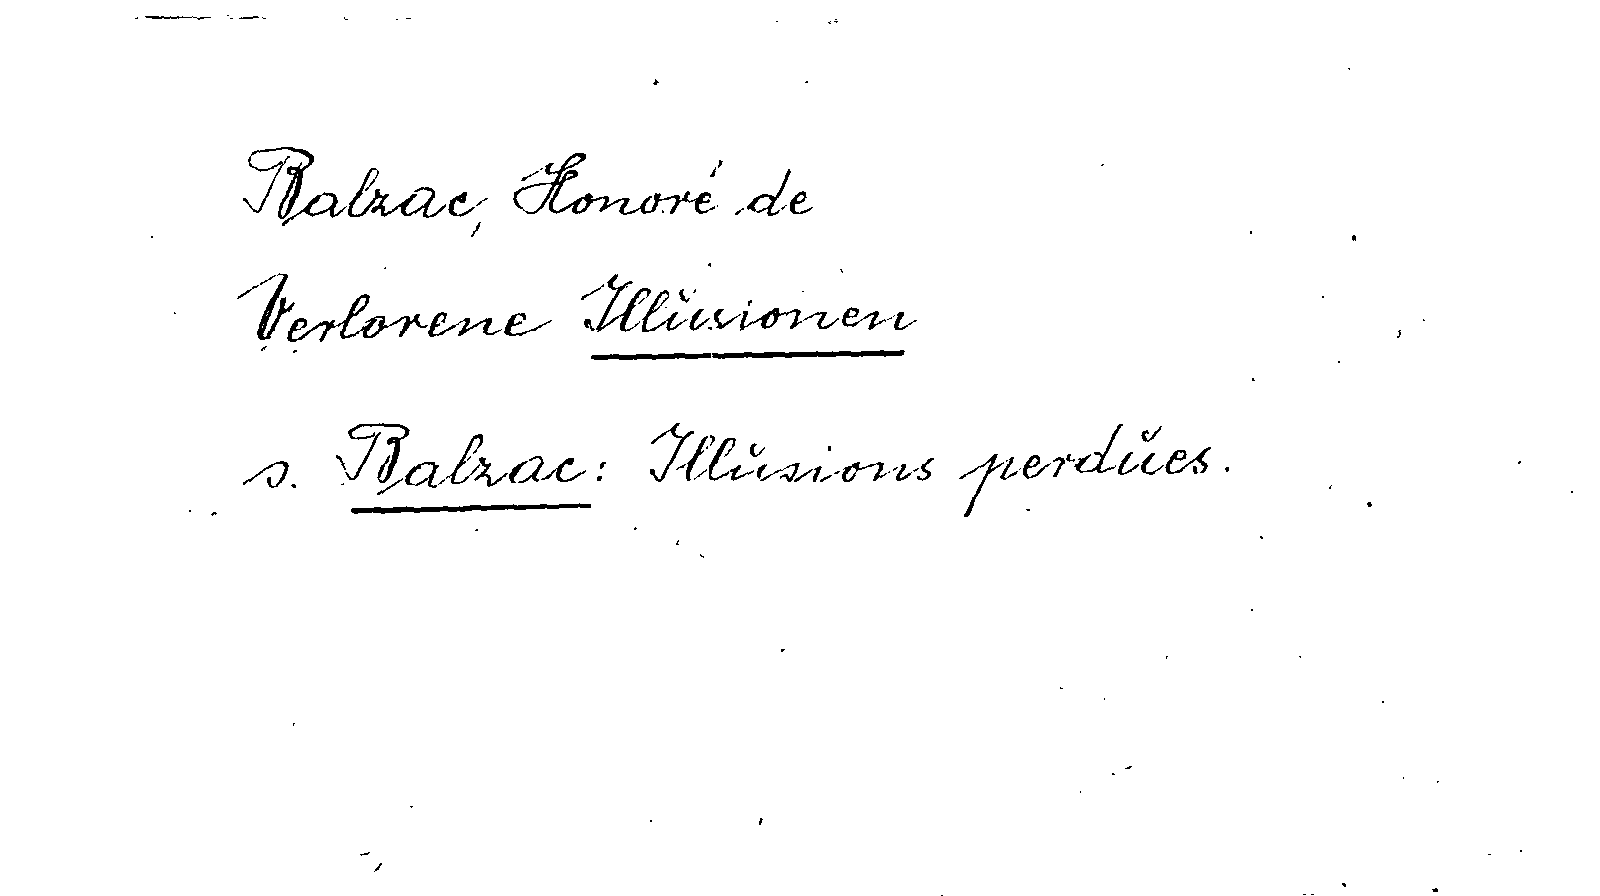 Balzac, Honoré de
Verlorene Illusionen
s. Balzac: Illusions perdues.